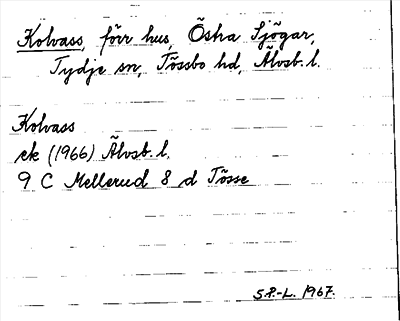 Kolvass, förr hus, Östra Sjögar,
Tydje sn, Tössbo hd, Älvsb. l.
Kolvass
ek (1966) Älvsb. l.
9 C Mellerud 8 d Tösse
S.P.-L. 1967.